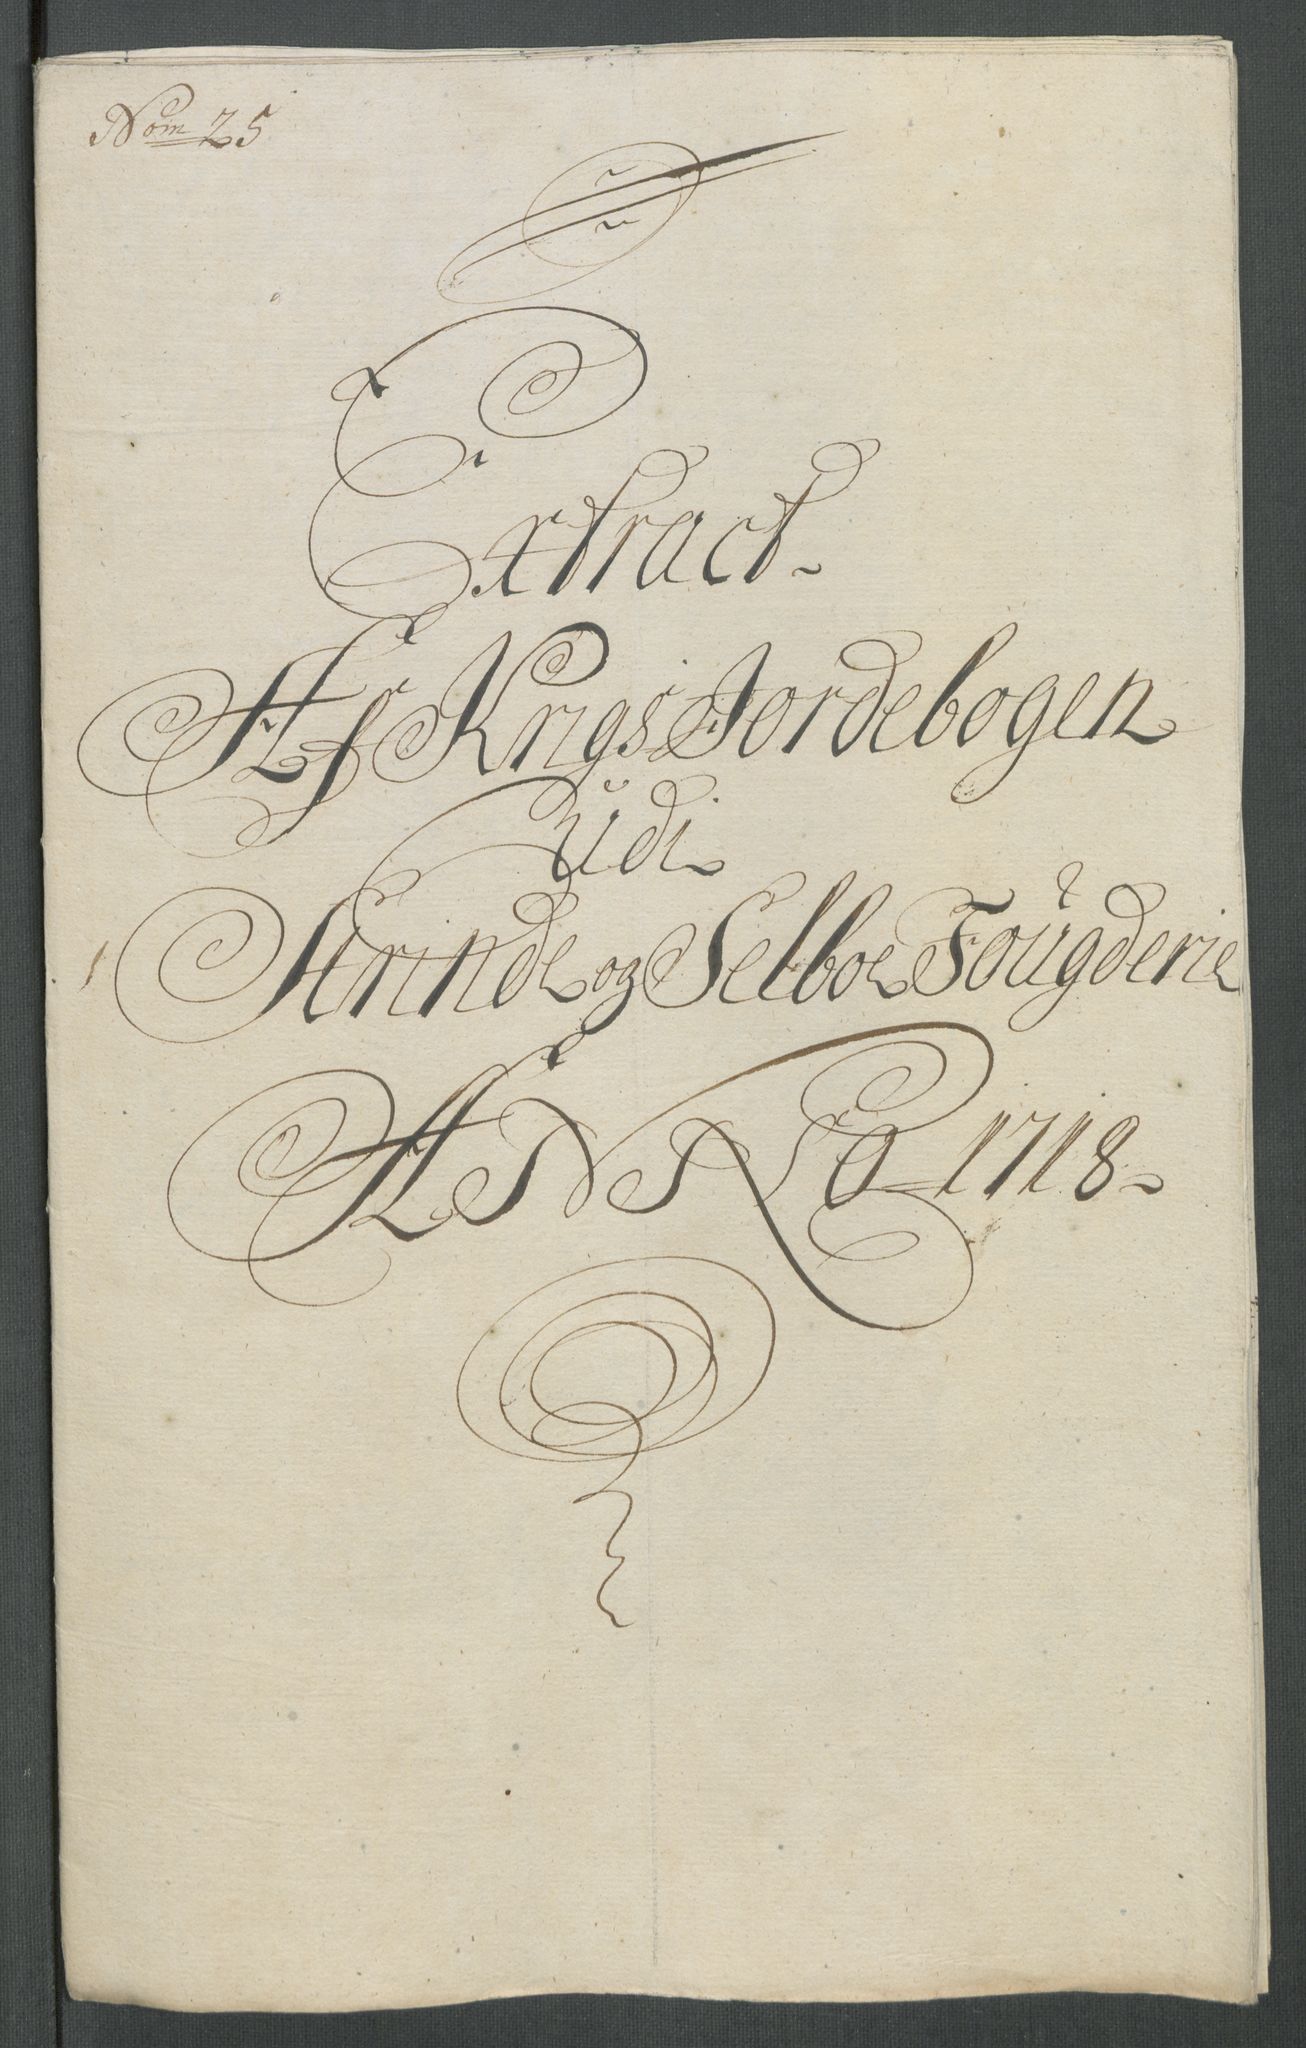 Nom 25
Extract
Af Krigs Jordebogen
Udi
Strinde og Selboe Foùgderie
ANNO 1718